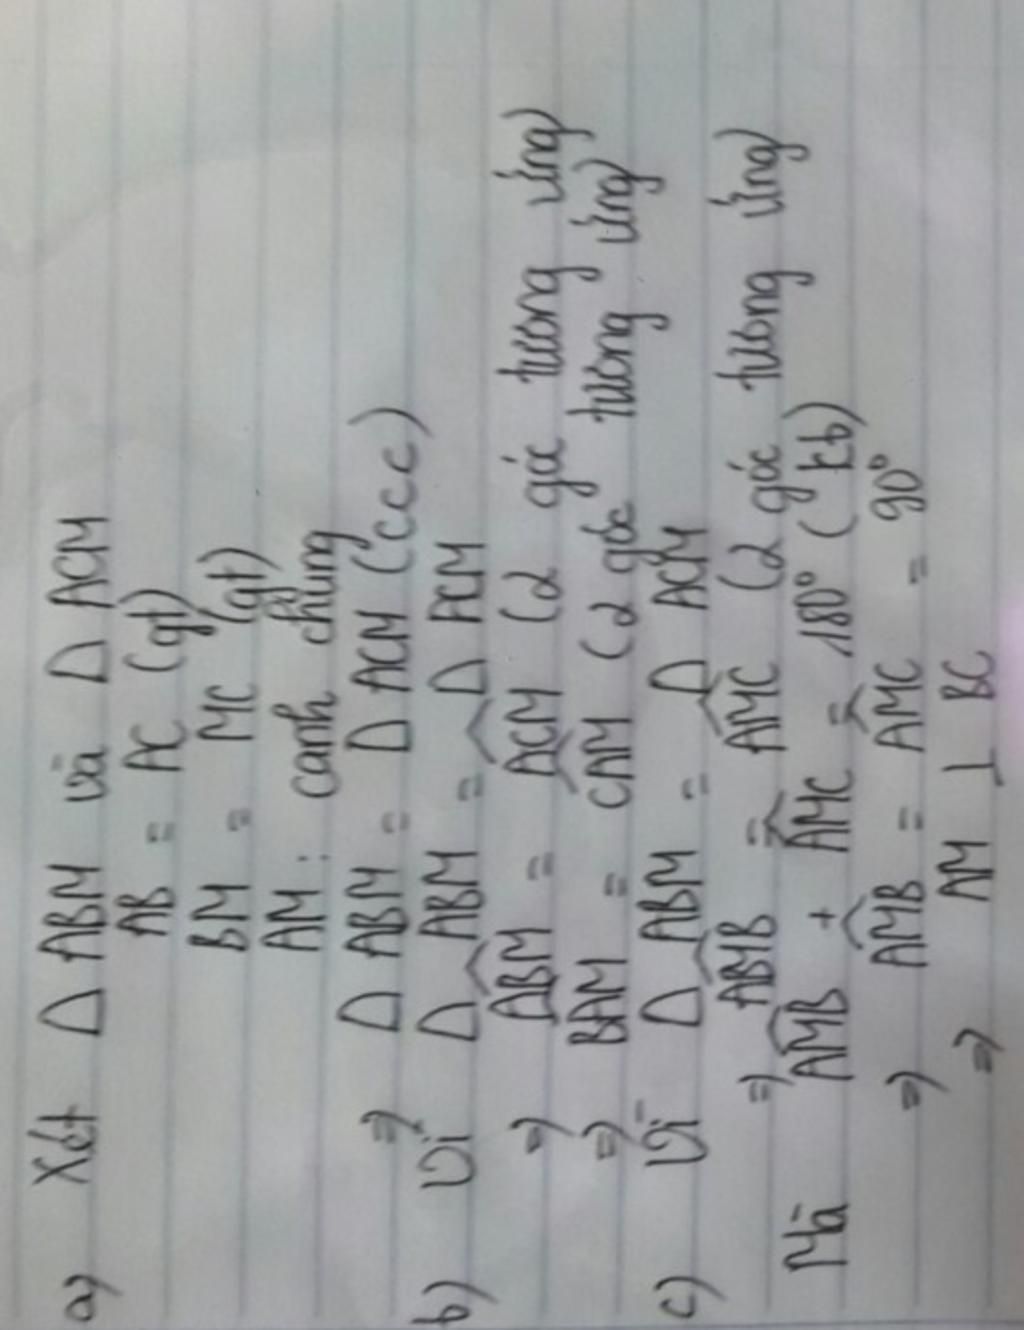 a) Xét Δ ABM và Δ ACM
AB = AC (gt)
BM = MC (gt)
AM : cạnh chung
=) Δ ABM = Δ ACM (ccc)
b) Vì Δ ABM = Δ ACM
=) ABM̂ = ACM̂ (2 góc tương ứng)
=) BAM = CAM̂ (2 góc tương ứng)
c) Vì Δ ABM = Δ ACM
=) AMB̂ = AMĈ (2 góc tương ứng)
Mà AMB̂ + AMĈ = 180° (kb)
=) AMB̂ = AMĈ = 90°
=) AM ⊥ BC